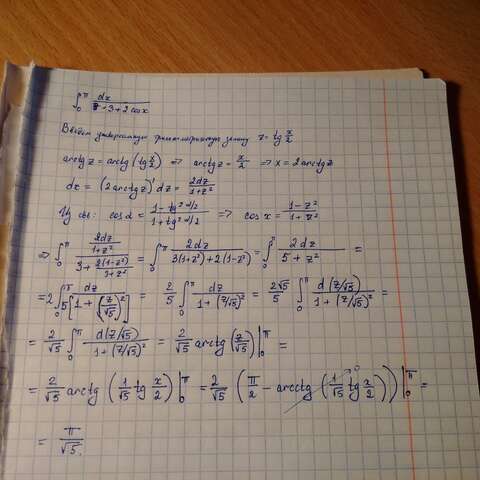 ∫₀^π dx / (3+2cosx)
Введем универсальную тригонометрическую замену z = tg x/2
arctg z = arctg (tg x/2) => arctg z = x/2 => x = 2arctg z
dx = (2arctg z)' dz = 2dz/(1+z²)
cos α = (1-tg² α/2)/(1+tg² α/2) => cos x = (1-z²)/(1+z²)
=> ∫₀^π (2dz/(1+z²))/(3+2(1-z²)/(1+z²)) = ∫₀^π 2dz/(3(1+z²)+2(1-z²)) = ∫₀^π 2dz/(5+z²) =
= 2∫₀^π dz/(5[1+(z/√5)²]) = 2/5 ∫₀^π dz/(1+(z/√5)²) = 2√5/5 ∫₀^π d(z/√5)/(1+(z/√5)²) =
= 2/√5 ∫₀^π d(z/√5)/(1+(z/√5)²) = 2/√5 arctg(z/√5)|₀^π =
= 2/√5 arctg(1/√5 tg x/2)|₀^π = 2/√5 (π/2 - arcctg(1/√5 tg x/2))|₀^π =
= π/√5.